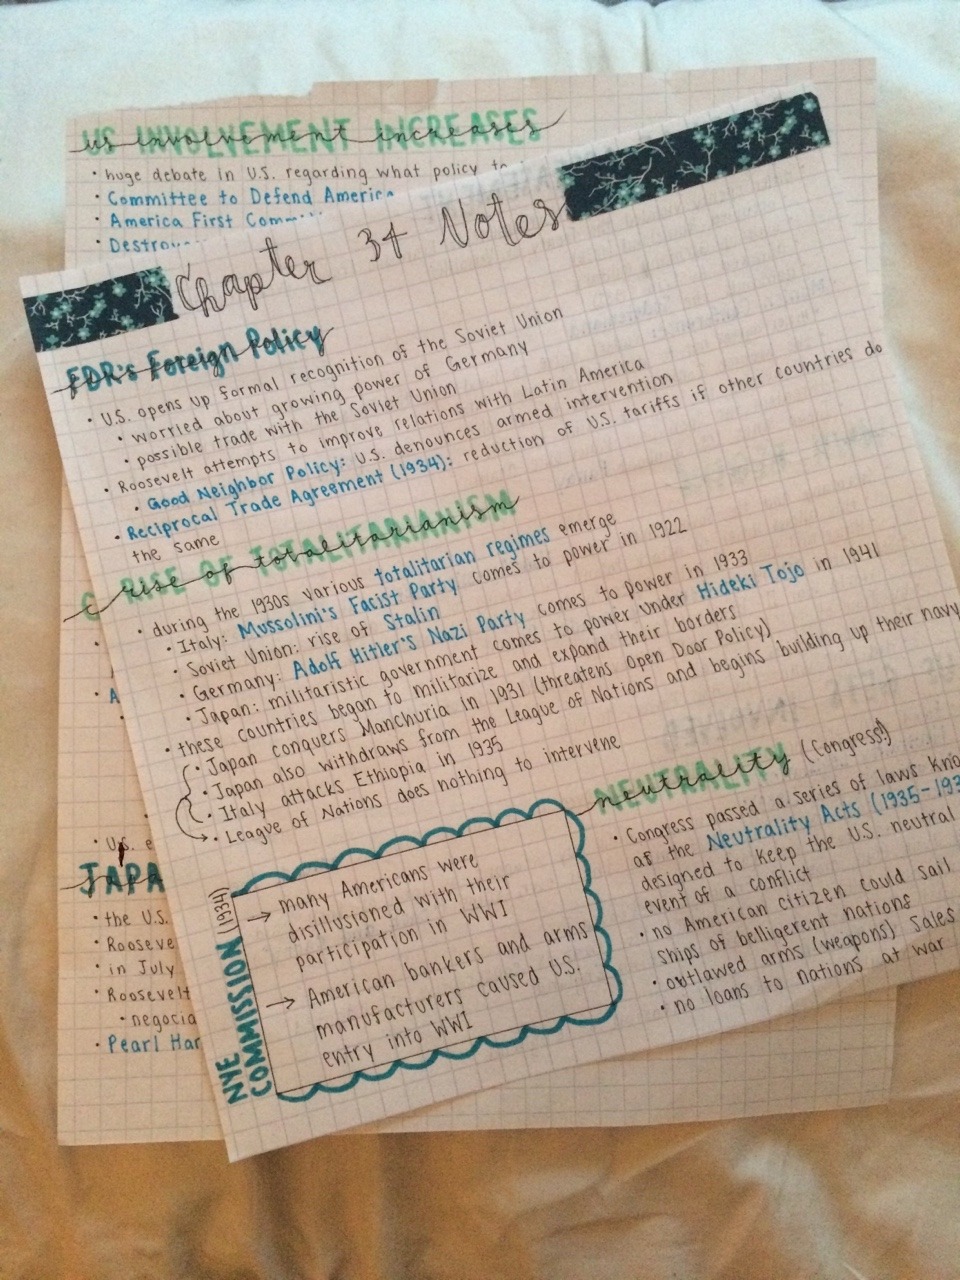 US INVOLVEMENT INCREASES
• huge debate in U.S. regarding what policy to
• Committee to Defend America
• America First Comm
• Destroy
Chapter 34 Notes
FDR's Foreign Policy
• U.S. opens up formal recognition of the Soviet Union
• worried about growing power of Germany
• possible trade with the Soviet Union
• Roosevelt attempts to improve relations with Latin America
• Good Neighbor Policy: U.S. denounces armed intervention
• Reciprocal Trade Agreement (1934): reduction of U.S. tariffs if other countries do
the same
RISE OF TOTALITARIANISM
• during the 1930s various totalitarian regimes emerge
• Italy: Mussolini's Facist Party comes to power in 1922
• Soviet Union: rise of Stalin
• Germany: Adolf Hitler's Nazi Party comes to power in 1933
• Japan: militaristic government comes to power under Hideki Tojo in 1941
• these countries began to militarize and expand their borders
• Japan conquers Manchuria in 1931 (threatens Open Door Policy)
• Japan also withdraws from the League of Nations and begins building up their navy
• Italy attacks Ethiopia in 1935
• League of Nations does nothing to intervene
NYE COMMISSION (1934)
→ many Americans were
disillusioned with their
participation in WWI
→ American bankers and arms
manufacturers caused U.S.
entry into WWI
NEUTRALITY (Congress!)
• Congress passed a series of laws kno
as the Neutrality Acts (1935-193
designed to keep the U.S. neutral
event of a conflict
• no American citizen could sail
ships of belligerent nations
• outlawed arms (weapons) sales
• no loans to nations at war
A
• U.S. e
JAPA
• the U.S.
• Rooseve
• in July
• Roosevelt
• negocia
• Pearl Har